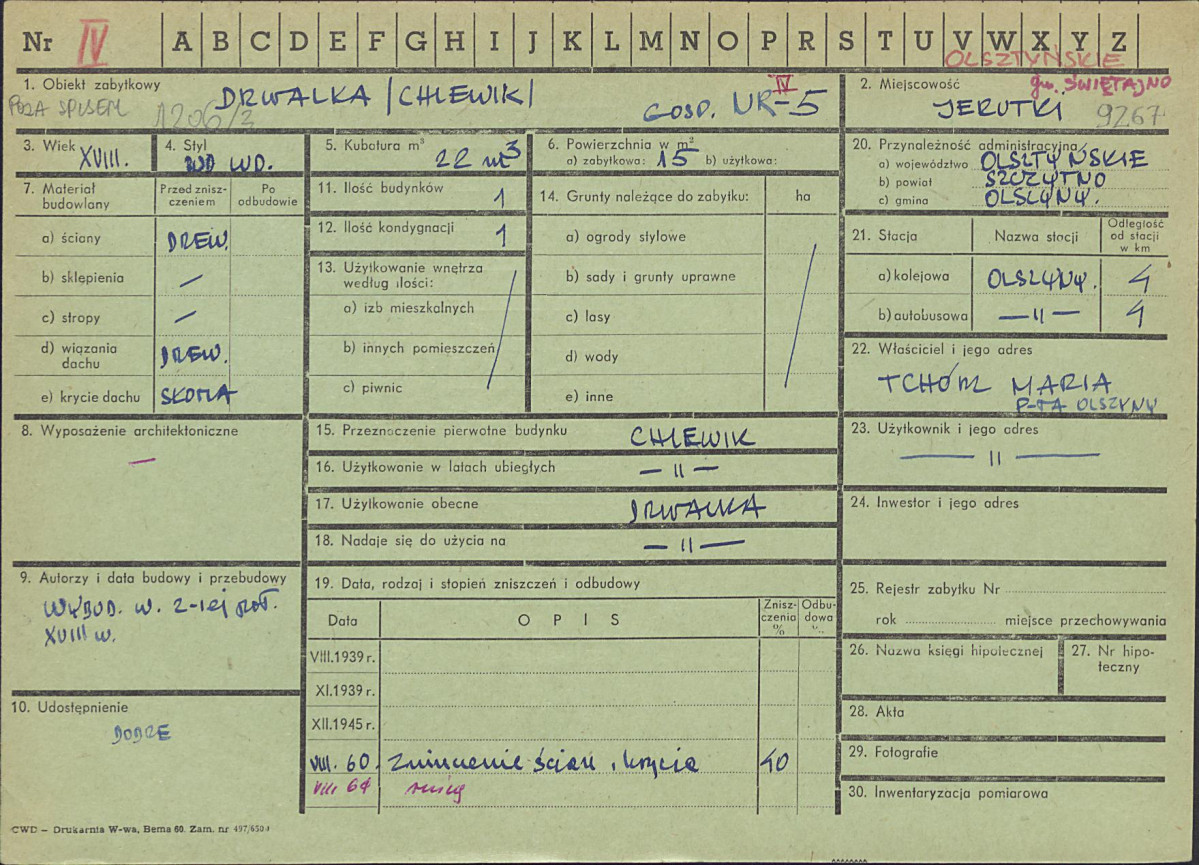 Nr IV A B C D E F G H I J K L M N O P R S T U V W X Y Z
OLSZTYŃSKIE
1. Obiekt zabytkowy
POZA SPISEM 1206/3
DRWALKA /CHLEWIK/
IV
GOSP. NR-5
2. Miejscowość
gm. ŚWIĘTAJNO
JERUTKI 9267
3. Wiek XVIII.
4. Styl
5. Kubatura m³ 22 m³
6. Powierzchnia w m²
a) zabytkowa: 15 b) użytkowa:
20. Przynależność administracyjna
a) województwo OLSZTYŃSKIE
b) powiat SZCZYTNO
c) gmina OLSZYNY.
7. Materiał budowlany
Przed zniszczeniem
Po odbudowie
a) ściany DREW.
b) sklepienia —
c) stropy —
d) wiązania dachu DREW.
e) krycie dachu SŁOMA
11. Ilość budynków 1
12. Ilość kondygnacji 1
13. Użytkowanie wnętrza
według ilości:
a) izb mieszkalnych
b) innych pomieszczeń
c) piwnic
14. Grunty należące do zabytku: ha
a) ogrody stylowe
b) sady i grunty uprawne
c) lasy
d) wody
e) inne
21. Stacja Nazwa stacji Odległość od stacji w km
a) kolejowa OLSZYNY. 4
b) autobusowa — " — 4
22. Właściciel i jego adres
TCHÓRZ MARIA
P-TA OLSZYNY
8. Wyposażenie architektoniczne
—
15. Przeznaczenie pierwotne budynku CHLEWIK
16. Użytkowanie w latach ubiegłych — " —
17. Użytkowanie obecne DRWALKA
18. Nadaje się do użycia na — " —
23. Użytkownik i jego adres
— " —
24. Inwestor i jego adres
9. Autorzy i data budowy i przebudowy
WYBUD. W. 2-iej poł.
XVIII w.
10. Udostępnienie
DOBRE
19. Data, rodzaj i stopień zniszczeń i odbudowy
Data OPIS Zniszczenia % Odbudowa %
VIII.1939 r.
XI.1939 r.
XII.1945 r.
VIII. 60. Zniszczenie ścian i krycia 40
VIII 64
25. Rejestr zabytku Nr
rok miejsce przechowywania
26. Nazwa księgi hipotecznej
27. Nr hipoteczny
28. Akta
29. Fotografie
30. Inwentaryzacja pomiarowa
CWD – Drukarnia W-wa, Bema 60. Zam. nr 497/650